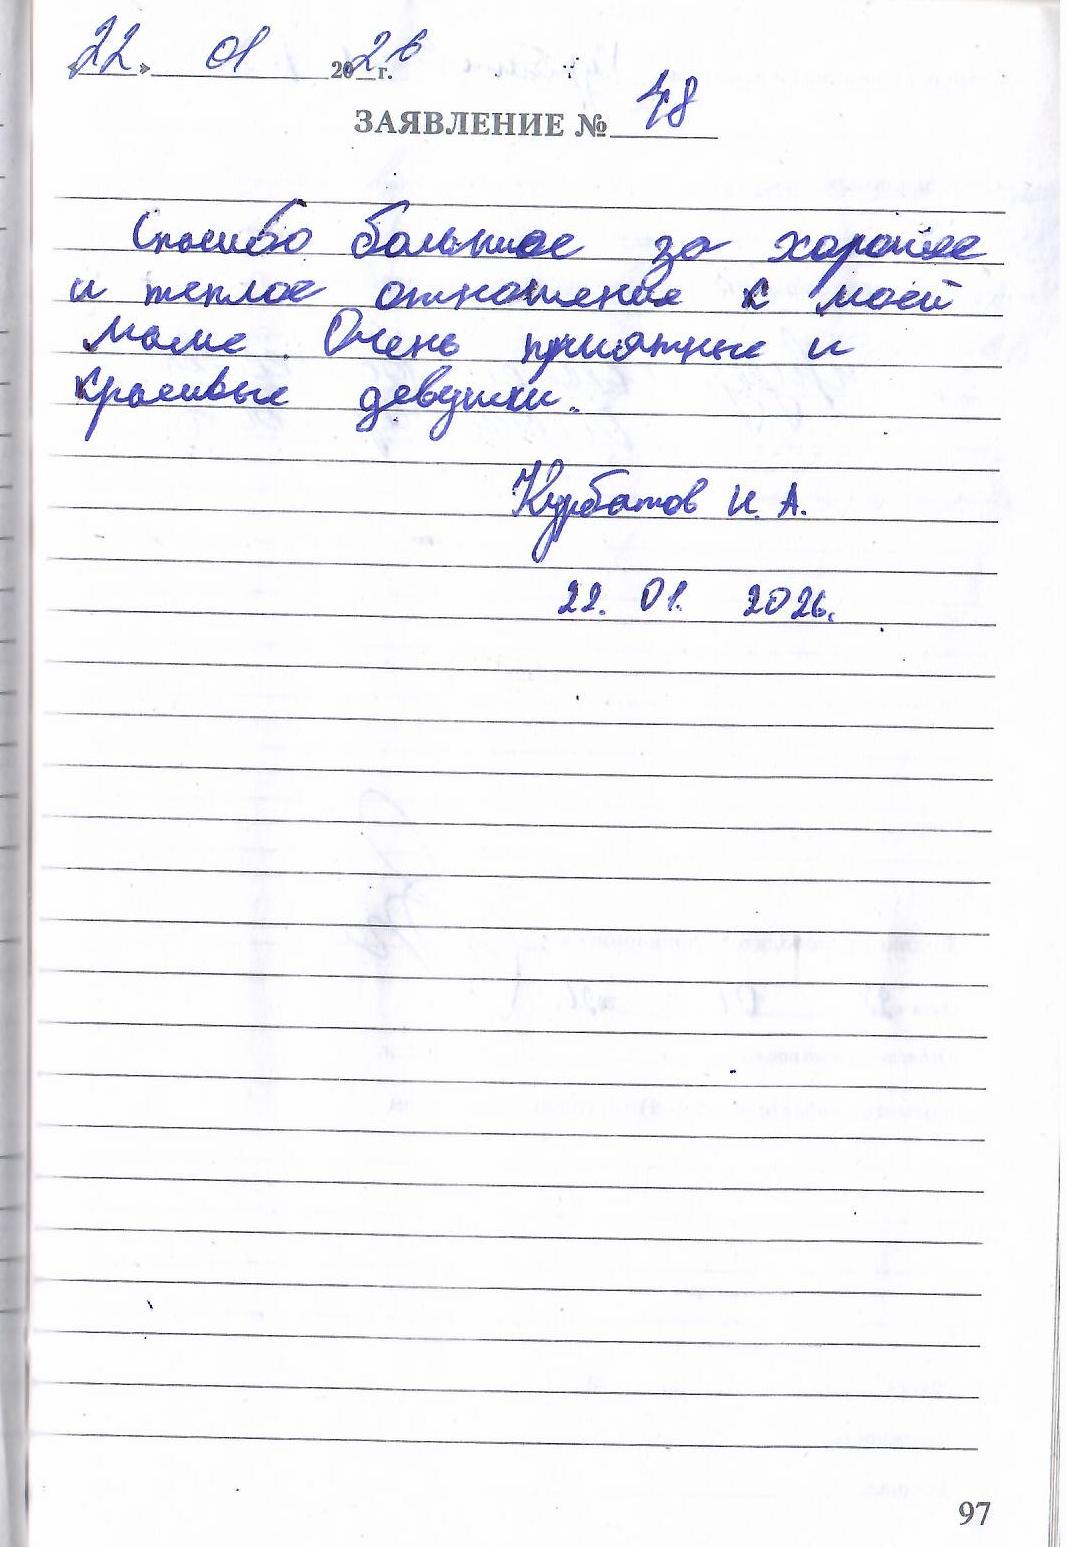 «22» 01 2026 г.
ЗАЯВЛЕНИЕ № 48
Спасибо большое за хорошее
и теплое отношение к моей
маме. Очень приятные и
красивые девушки.
Курбатов И. А.
22. 01. 2026.
97